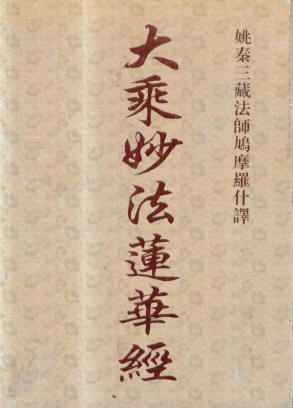 姚秦三藏法師鳩摩羅什譯
大乘妙法蓮華經